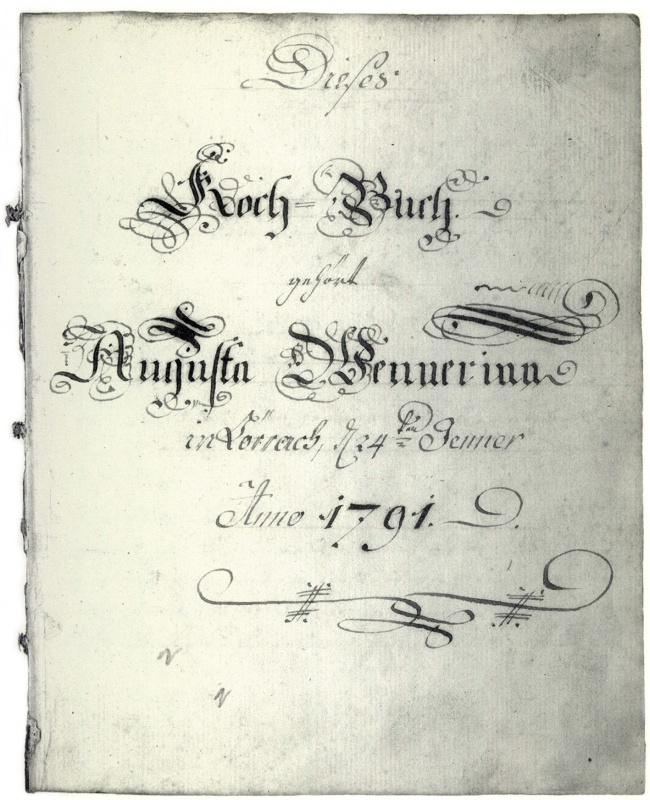 Dieses
Koch=Buch.
gehört
Augusta Wennerinn
in Lörrach, d 24ten Jenner
Anno 1791.